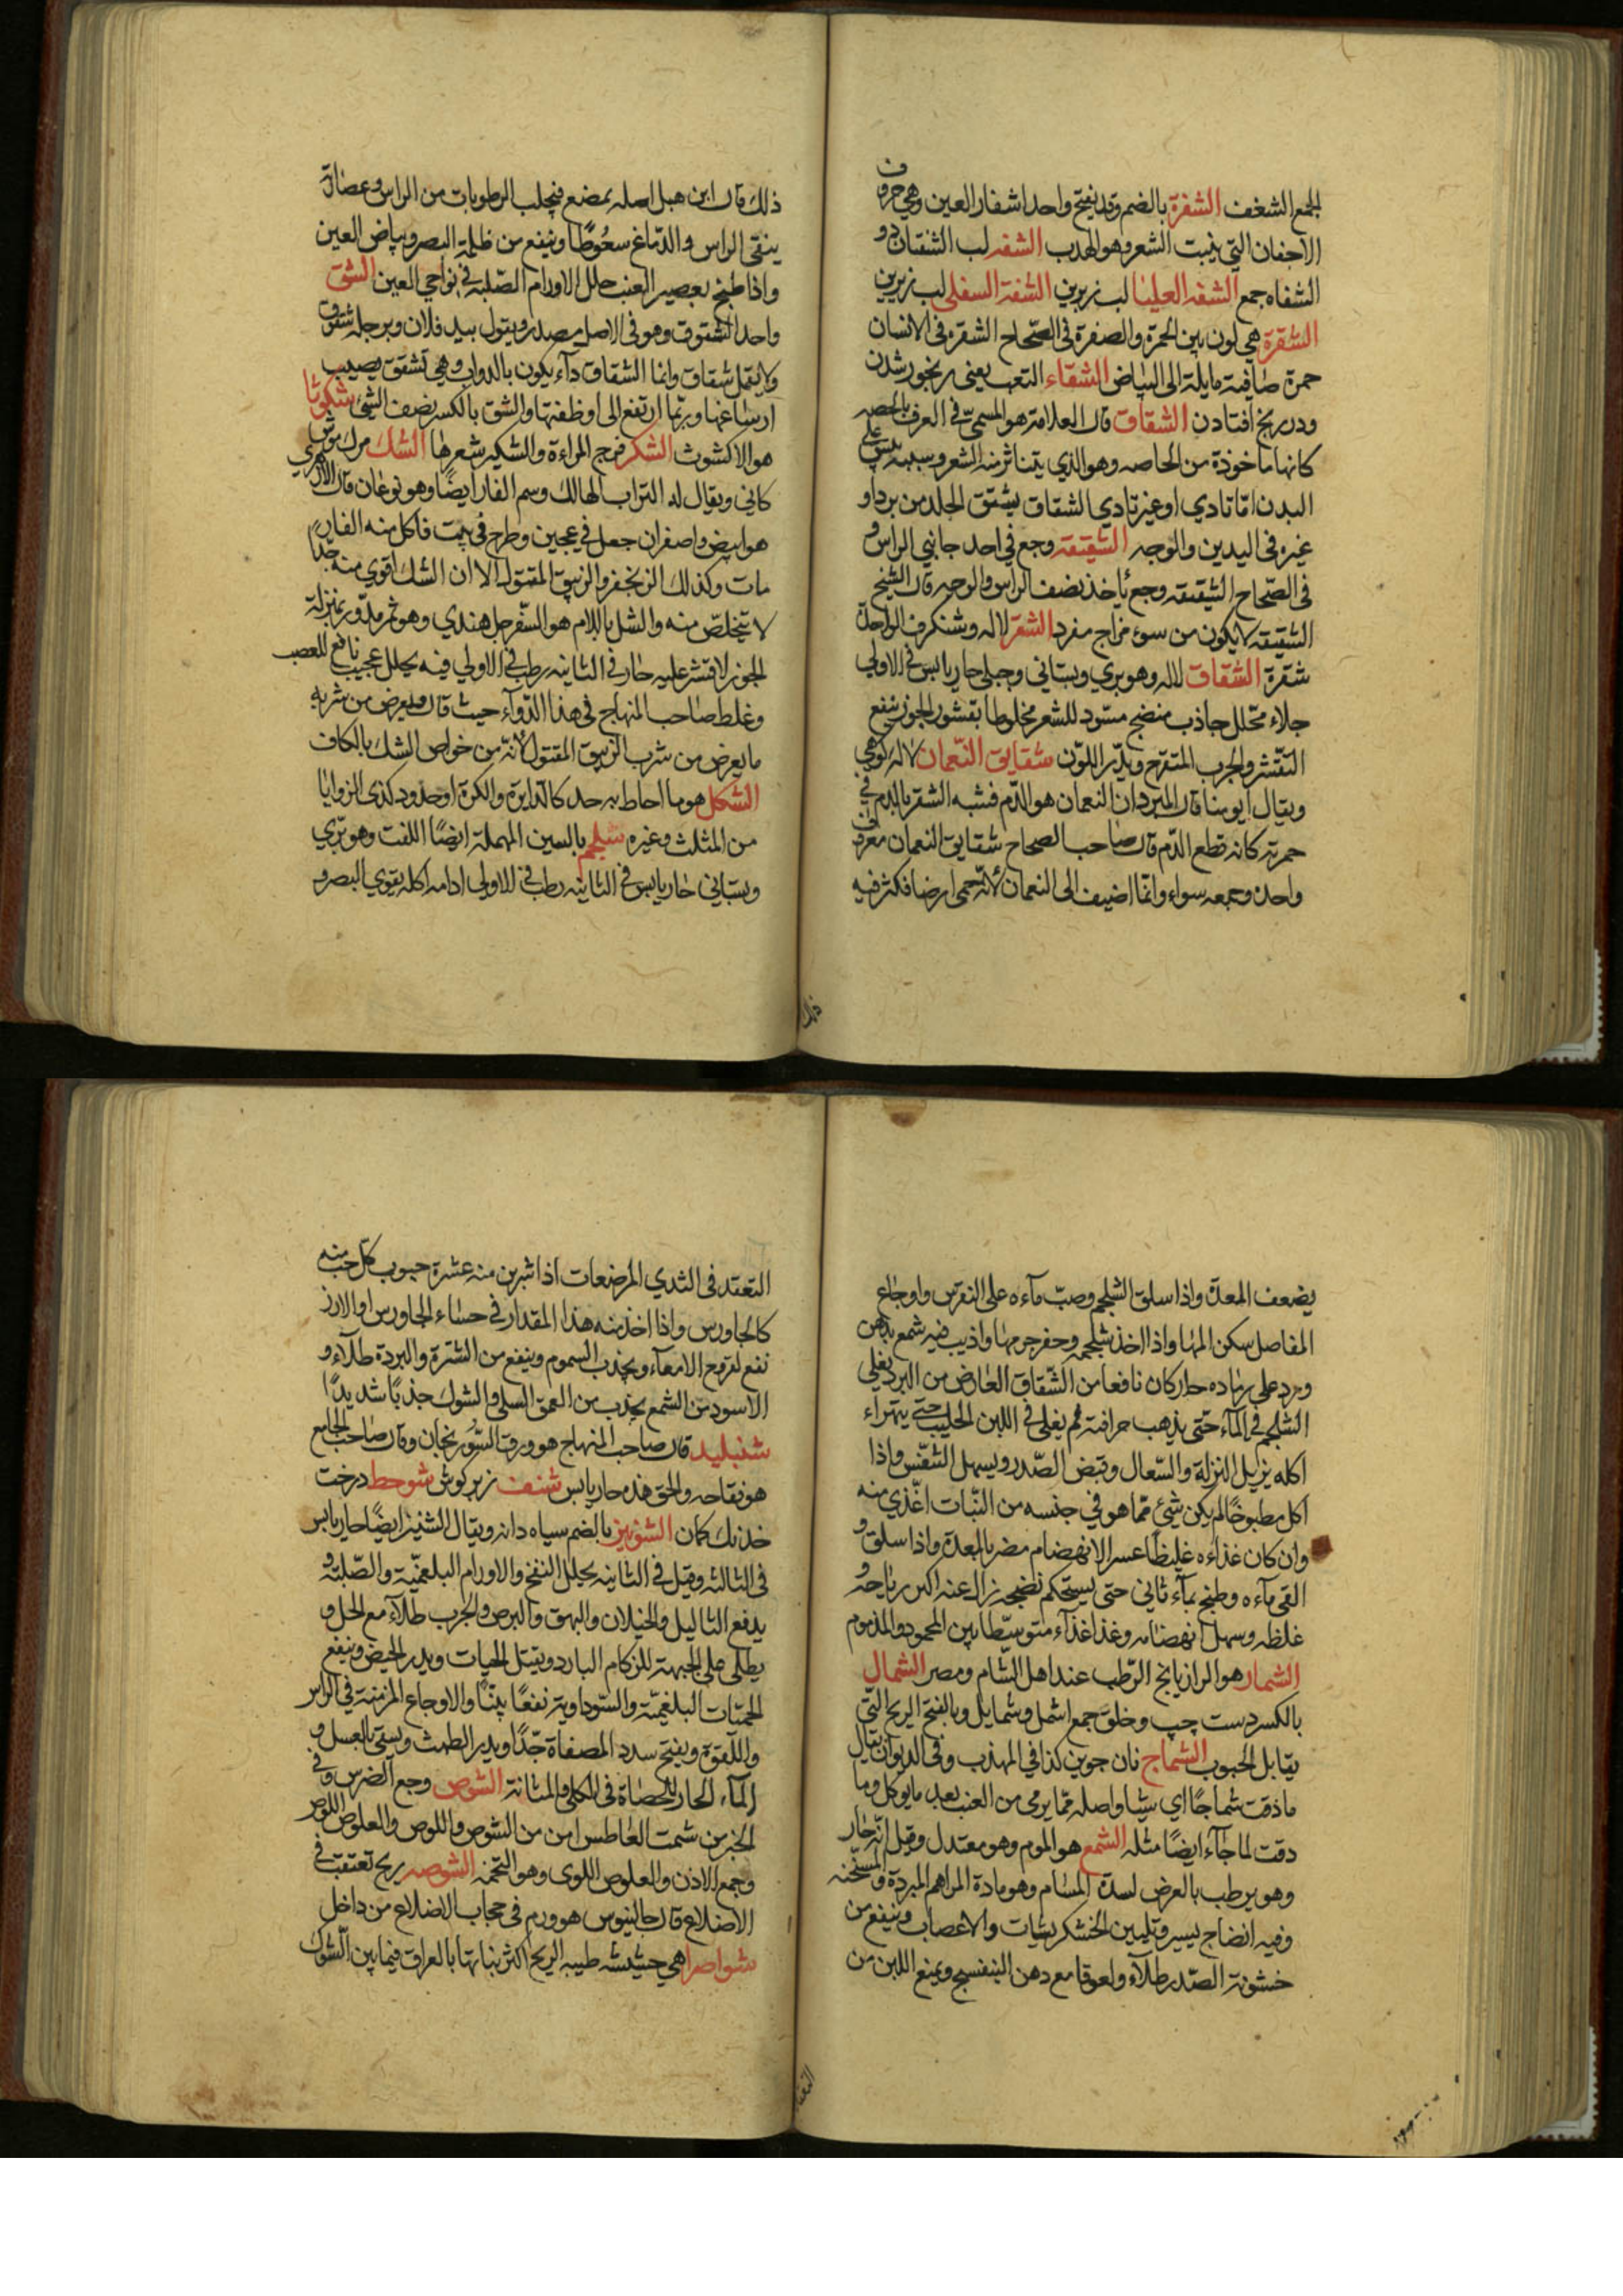 الجمع الشغف الشفرة بالضم وقد يفتح واحد اشفار العين وهي حروف
الاجفان التي ينبت الشعر وهو الهدب الشفه لب الشفتان دو
الشفاه جمع الشفه العليا لب زبرين الشفة السفلى لب زيرين
الشقرة هي لون بين الحمرة والصفرة في الصحاح الشقرة في الانسان
حمرة صافية مايلة الى البياض الشقاء التعب يعنى رنجور شدن
ودر رنج افتادن الشقاق قال العلامة هو المسمى في العرف بالحصه
كانها ماخوذة من الحاصه وهو الذي يتناثر منه الشعر وسببه يبس على
البدن اما تادي او غير تادي الشقاق يشقق الجلد من برد او
غيره في اليدين والوجه الشقيقة وجع في احد جانبي الراس و
في الصحاح الشقيقه وجع ياخذ نصف الراس والوجه قال الشيخ
الشقيقه لا يكون من سوء مزاج مفرد الشقر لاله وشنكرف الواحدة
شقرة الشقاق لاله وهو بري وبستاني وجبلي حار يابس في الاولى
جلاء محلل جاذب منضج مسود للشعر مخلوطا بقشور الجوز ينفع
التقشر والجرب المتقرح ويدر اللون شقايق النعمان لاله كوهي
ويقال ابو مينا قال المبرد ان النعمان هو الدم فشبه الشقر بالدم في
حمرته كانه قطع الدم قال صاحب الصحاح شقايق النعمان معروف
واحده وجمعه سواء وانما اضيف الى النعمان لانه حمى ارضا فكثر فيه
ذلك
ذلك قال ابن هبل اصله يمضغ فيجلب الرطوبات من الراس وعصارته
ينقى الراس والدماغ سعوطا وينفع من ظلمة البصر وبياض العين
واذا طبخ بعصير العنب حلل الاورام الصلبة في نواحي العين الشق
واحد الشقوق وهو في الاصل مصدر ويقول بيد فلان وبرجله شقوق
ولا يقل شقاق وانما الشقاق داء يكون بالدواب وهي تشقق يصيب
ارساغها وربما ارتفع الى اوظفتها والشق بالكسر نصف الشئ شكوثا
هو الاكشوث الشكر فرج المراءة والشكير شعرها الشك مرك موش
كاني ويقال له التراب الهالك وسم الفار ايضا وهو نوعان قال الازهري
هو ابيض واصفر ان جعل في عجين وطرح في بيت فاكل منه الفار
مات وكذلك الزنجفر والزيبق المقتول الا ان الشك اقوى منه جدا
لا يتخلص منه والشل باللام هو السفرجل هندي وهو ثمر مدور بمنزلة
الجوز لا قشر عليه حار في الثانيه رطب في الاولى فيه يحلل عجيب نافع للعصب
وغلط صاحب المنهاج في هذا الدواء حيث قال ويعرض من شربه
ما يعرض من شرب الزيبق المقتول لانه من خواص الشك بالكاف
الشكل هو ما احاط به حد كالدايرة والكرة او حدود كذى الزوايا
من المثلث وغيره شلجم بالسين المهملة ايضا اللفت وهو بري
وبستاني حار يابس في الثانيه رطب في الاولى ادامه اكله يقوي البصر و
يضعف المعدة واذا سلق الشلجم وصب ماءه على النقرس واوجاع
المفاصل سكن المها واذا اخذ شلجمه وحفر جرمها واذيب فيه شمع بدهن
ورد على رماده حار كان نافعا من الشقاق العارض من البرد يغلى
الشلجم في الماء حتى يذهب حرافته ثم يغلى في اللبن الحليب حتى يتهراء
اكله يزيل النزلة والسعال وقبض الصدر ويسهل التنفس واذا
اكل مطبوخا لم يكن شئ مما هو في جنسه من النبات اغذى منه
وان كان غذاءه غليظا عسر الانهضام مضر بالمعدة واذا سلق و
القي ماءه وطبخ بماء ثاني حتى يستحكم نضجه زال عنه اكثر رياحه و
غلظه وسهل انهضامه وغذا غذاء متوسطا بين المحمود والمذموم
الشمار هو الرازيانج الرطب عند اهل الشام ومصر الشمال
بالكسر دست چپ وخلق جمع اشمل وشمايل وبالفتح الريح التي
يقابل الجنوب الشماج نان جوين كذا في المهذب وفي الديوان يقال
ما ذقت شماجا اي شيا واصله مما يرمى من العنب بعد ما يوكل وما
دقت لماجا ايضا مثله الشمع هو الموم وهو معتدل وقيل انه حار
وهو يرطب بالعرض لسده المسام وهو مادة المراهم المبردة والمسخنه
وفيه انضاج يسير وتليين الخشكريشات والاعصاب وينفع من
خشونة الصدر طلاء ولعوقا مع دهن البنفسج ويمنع اللبن من
التعقد
التعقد في الثدي المرضعات اذا شربن منه عشرة حبوب كل حب منه
كالجاورس واذا اخذ منه هذا المقدار في حساء الجاورس او الارز
نفع لقروح الامعاء ويجذب السموم وينفع من الشترة والبردة طلاء و
الاسود من الشمع يجذب من العمق السلى والشوك جذبا شديدا
شنبليد قال صاحب المنهاج هو ورق السورنجان وقال صاحب الجامع
هو فقاحه والحق هذه حار يابس شنف زير كوش شوحط درخت
خدنك كمان الشونيز بالضم سياه دانه ويقال الشنيز ايضا حار يابس
في الثالثه وقيل في الثانيه يحلل النفخ والاورام البلغمية والصلبة و
يدفع الثاليل والخيلان والبهق والبرص والجرب طلاء مع الخل و
يطلى على الجبهة للزكام البارد ويقتل الحيات ويدر الحيض وينفع
الحميات البلغمية والسوداوية نفعا بينا والاوجاع المزمنة في الراس
واللقوة ويفتح سدد المصفاة جدا ويدر الطمث ويسقى بالعسل و
الماء الحار للحصاة في الكلى والمثانة الشوص وجع الضرس وفي
الخبر من شمت العاطس امن من الشوص واللوص والعلوص اللوص
وجع الاذن والعلوص اللوى وهو التخمة الشوصه ريح تعتقب في
الاضلاع قال جالينوس هو ورم في حجاب الاضلاع من داخل
شواصرا هي حشيشه طيبه الريح اكثر نباتها بالعراق فيما بين الشوك